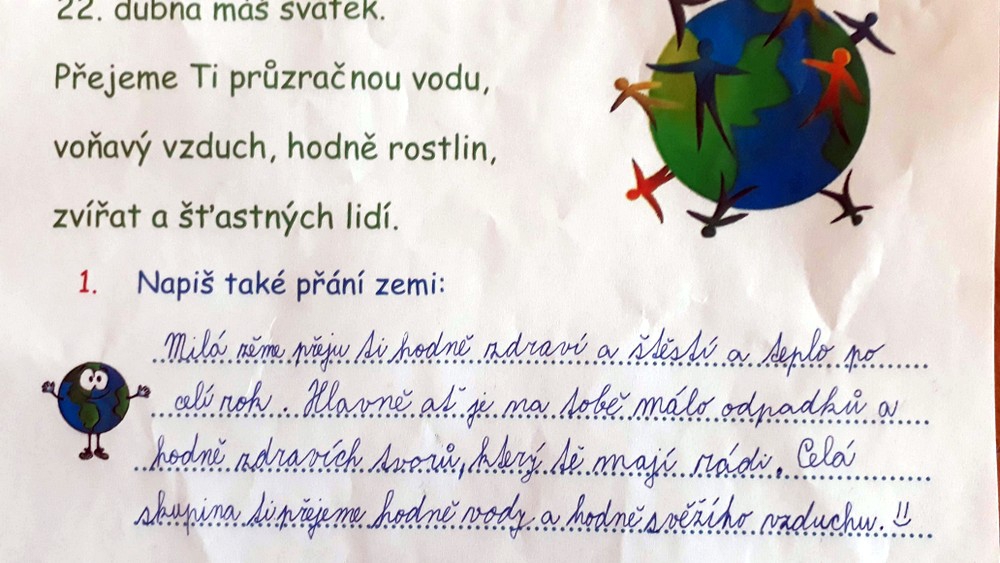 22. dubna máš svátek.
Přejeme Ti průzračnou vodu,
voňavý vzduch, hodně rostlin,
zvířat a šťastných lidí.
1. Napiš také přání zemi:
Milá zěme přeju ti hodně zdraví a štěstí a teplo po
celí rok. Hlavně ať je na tobě málo odpadků a
hodně zdravích tvorů, který tě mají rádi. Celá
skupina ti přejeme hodně vody a hodně svěžího vzduchu.!!